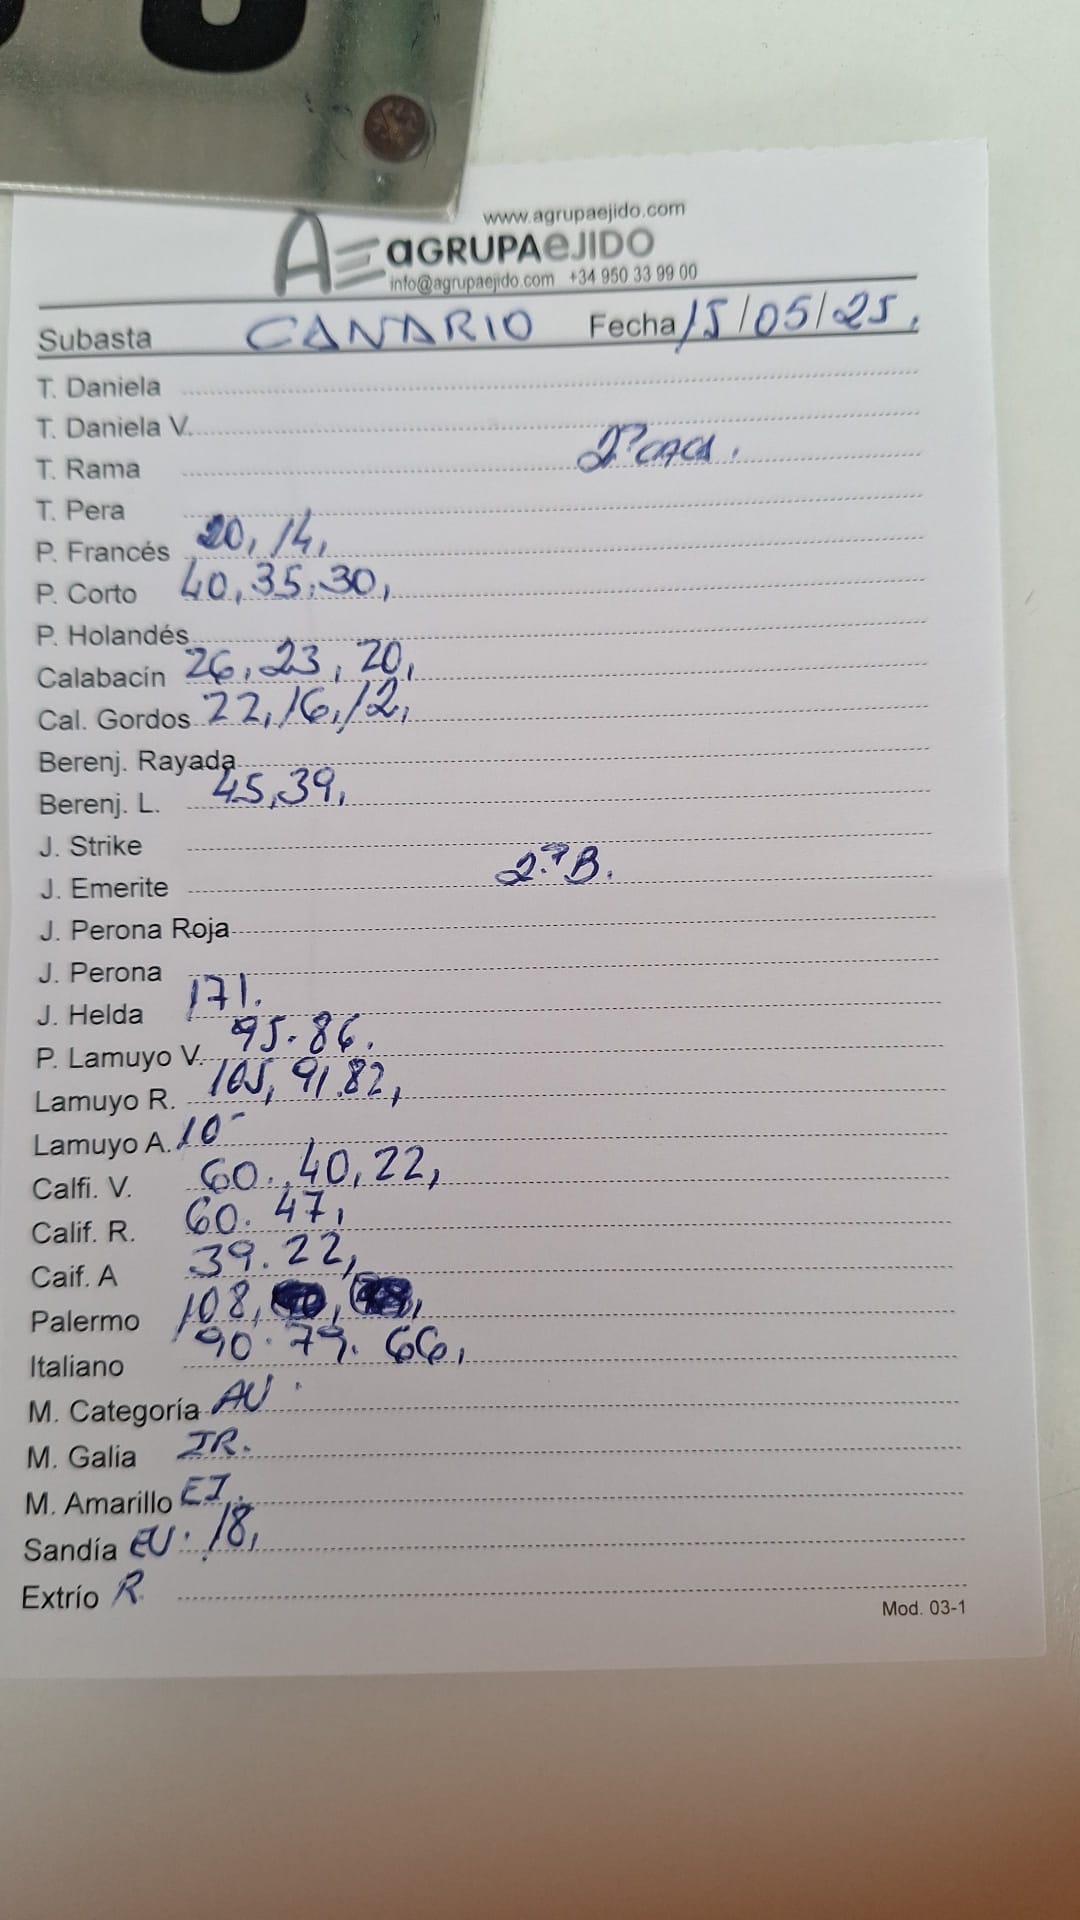 www.agrupaejido.com
AE aGRUPAeJIDO
info@agrupaejido.com +34 950 33 99 00
Subasta CANARIO Fecha 15/05/25.
T. Daniela
T. Daniela V.
T. Rama
T. Pera
P. Francés 20, 14,
P. Corto 40, 35, 30,
P. Holandés
Calabacín 26, 23, 20,
Cal. Gordos 22, 16, 12,
Berenj. Rayada
Berenj. L. 45, 39,
J. Strike
J. Emerite 2.ª B.
J. Perona Roja
J. Perona
J. Helda 171.
P. Lamuyo V. 95. 86.
Lamuyo R. 105, 91. 82,
Lamuyo A. 10-
Calfi. V. 60., 40, 22,
Calif. R. 60. 47,
Caif. A 39. 22,
Palermo 108,
Italiano 90. 79. 66,
M. Categoría AU.
M. Galia IR.
M. Amarillo EJ.
Sandía EU. 18,
Extrío R.
Mod. 03-1